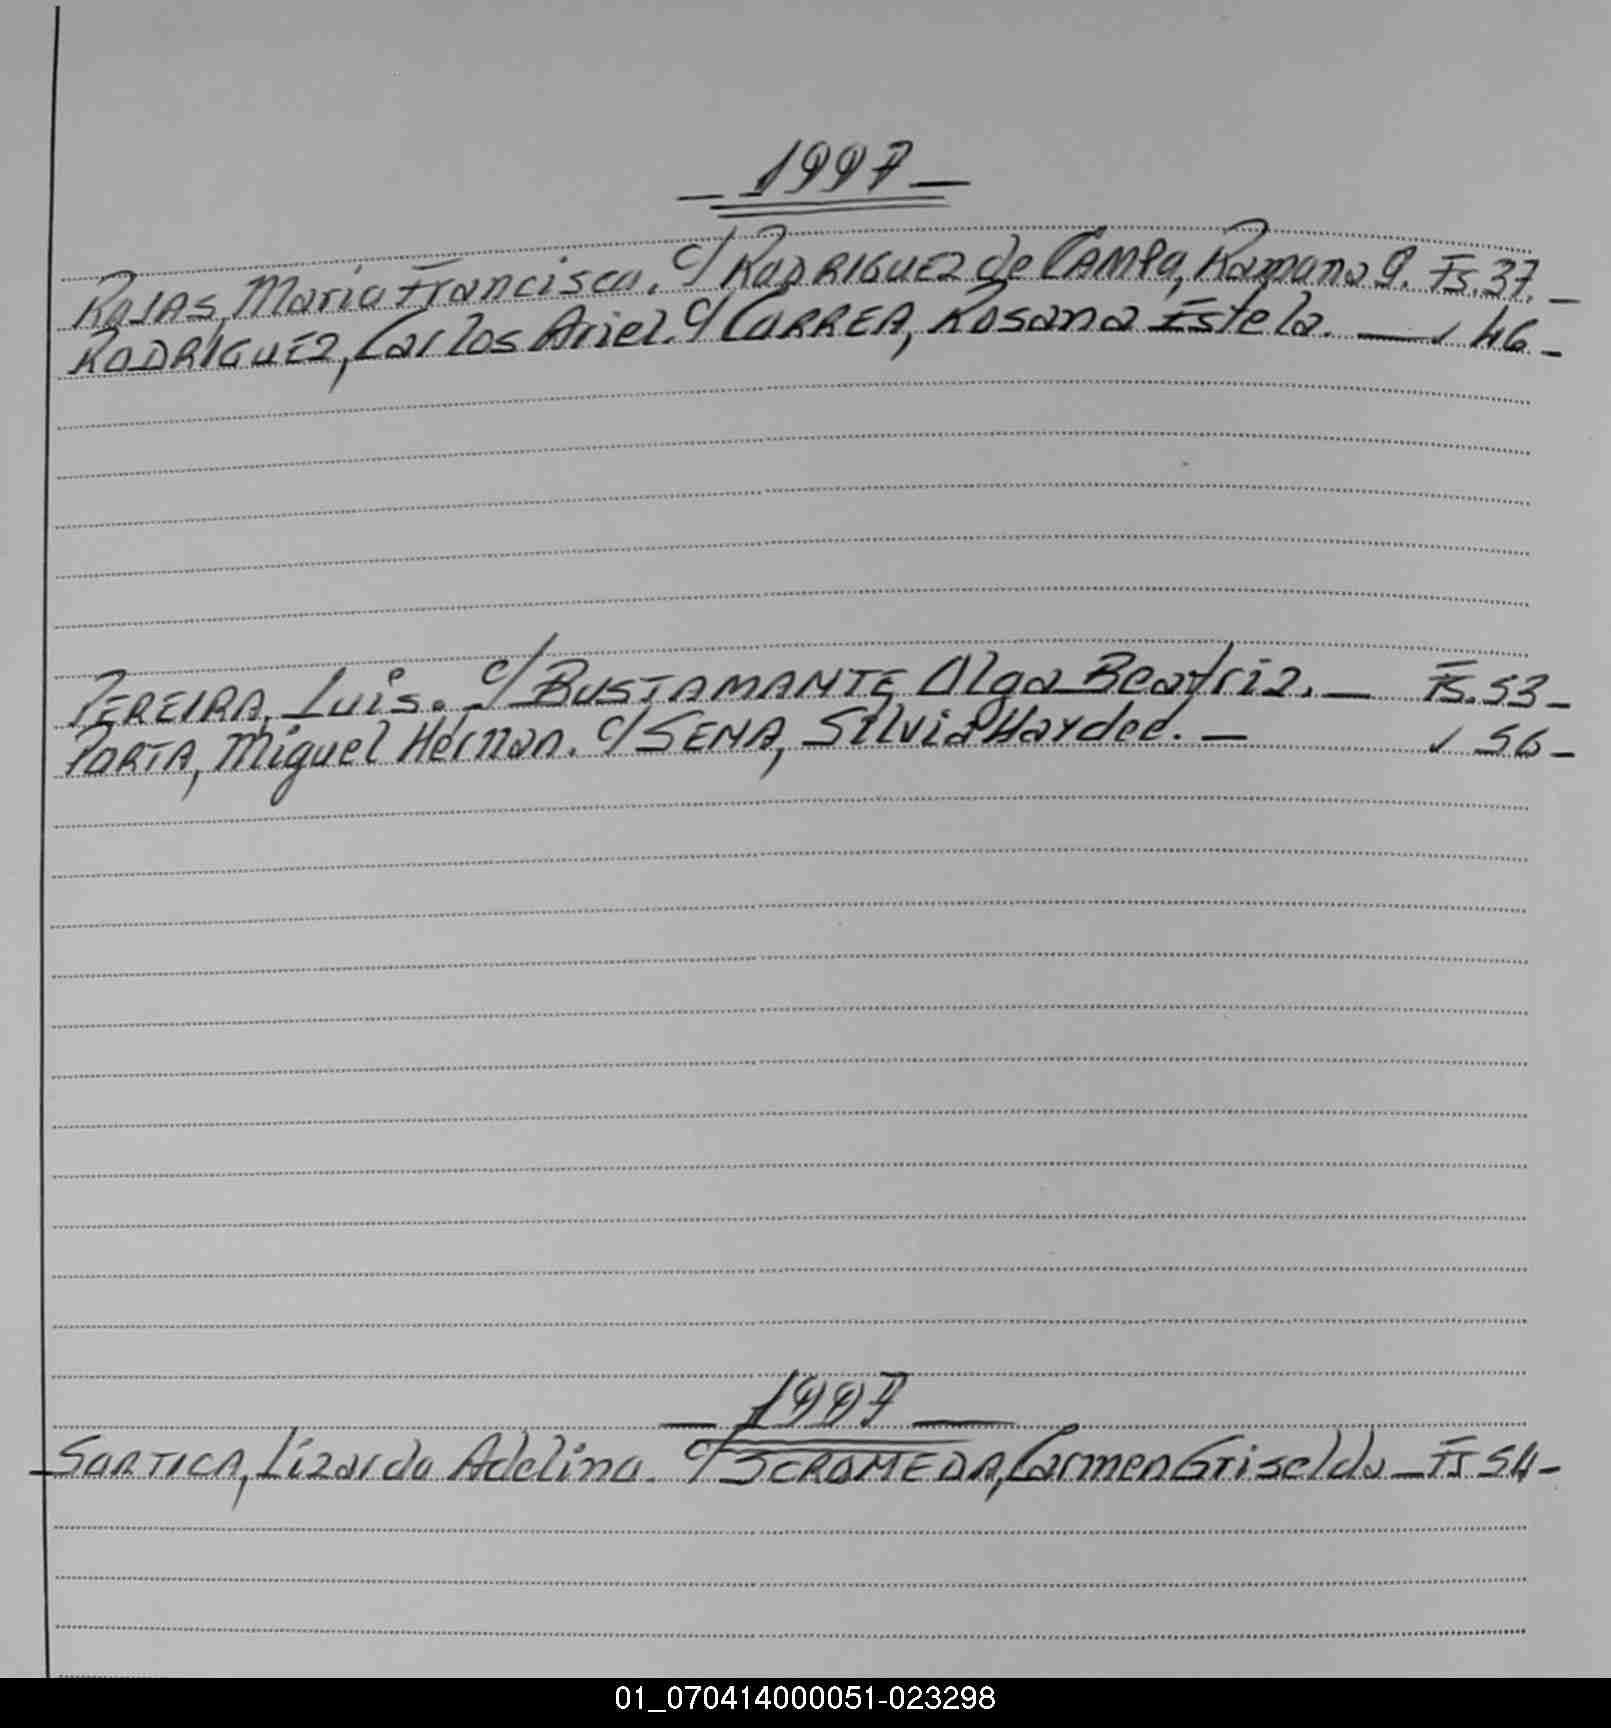 — 1997 —
ROJAS, Maria Francisca. c/ RODRIGUEZ de CAMPA, Ramona G. Fs. 37. —
RODRIGUEZ, Carlos Ariel. c/ CORREA, Rosana Estela. — ✓ 46 —
PEREIRA, Luis. c/ BUSTAMANTE Olga Beatriz. — Fs. 53 —
PORTA, Miguel Hernan. c/ SENA, Silvia Haydee. — ✓ 56 —
— 1997 —
SORTICA, Lizardo Adelino. c/ SCROMEDA, Carmen Griselda — Fs 54 —
01_070414000051-023298